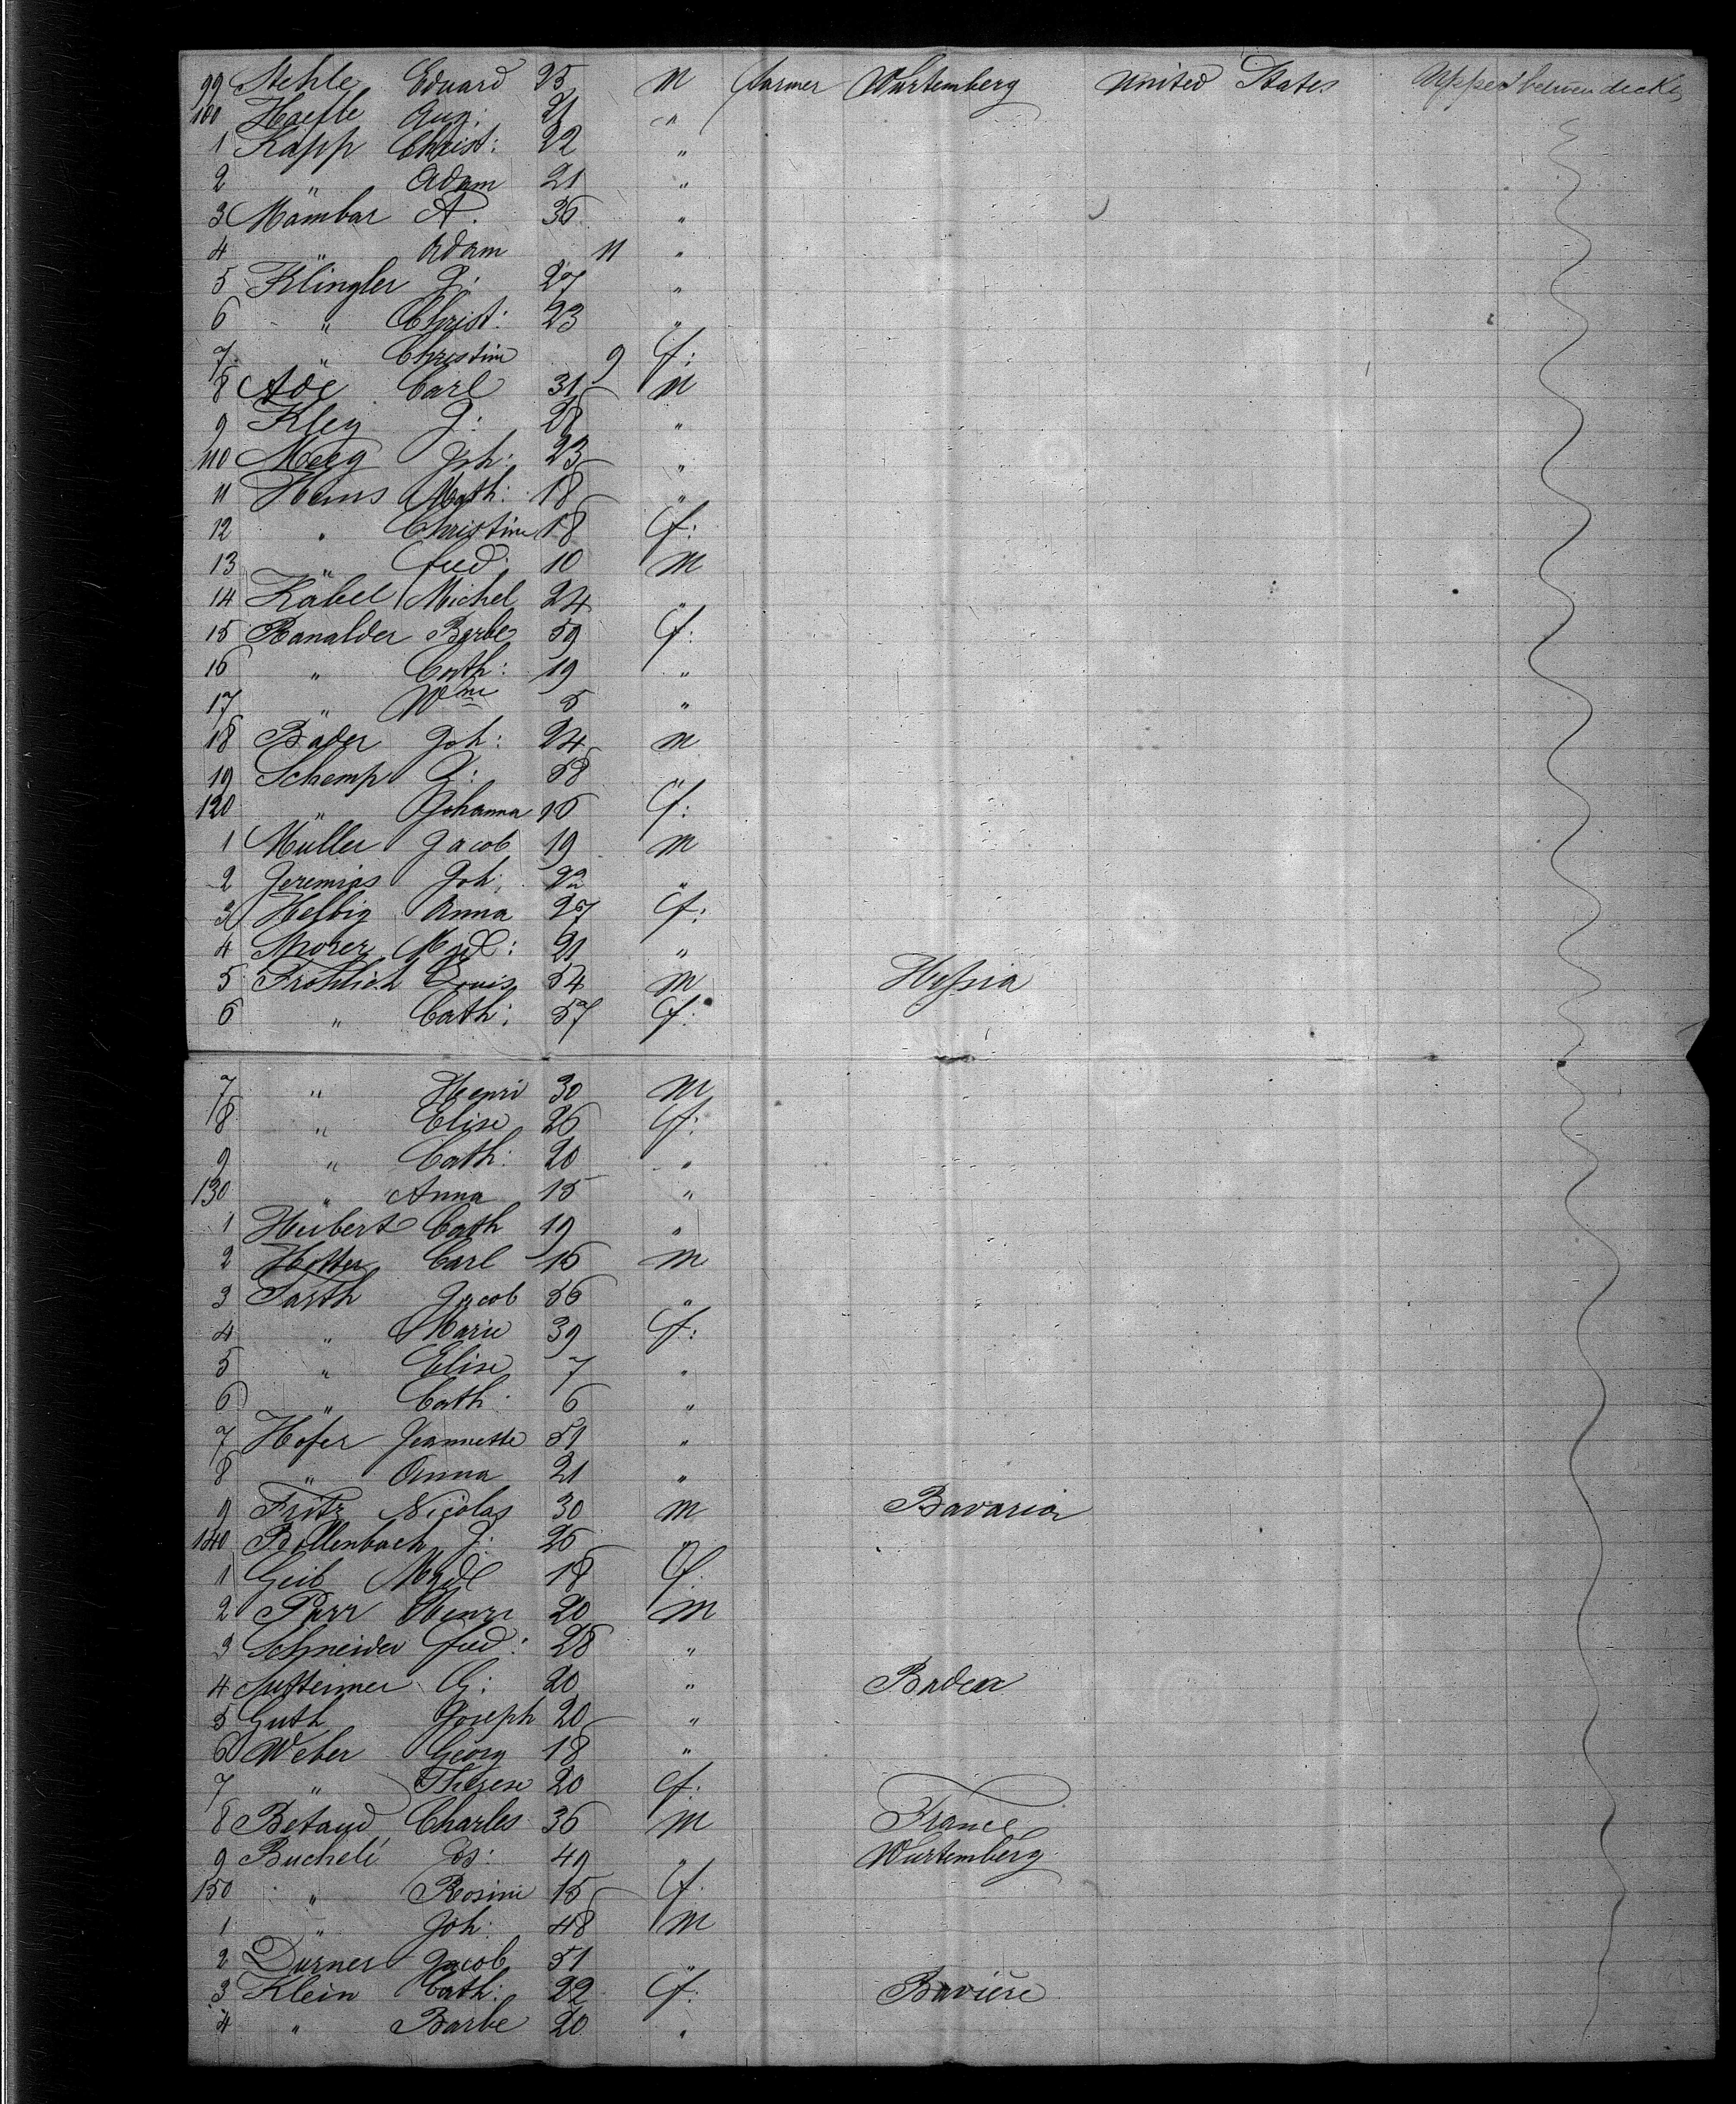 99 Stehle Eduard 25 m farmer Wurtemberg United States Upper between decks
100 Haefle Aug: 21 "
1 Kapp Christ: 22 "
2 " Adam 21 "
3 Mämbar A. 36 "
4 " Adam 11 "
5 Klingler J: 27 "
6 " Christ: 23 "
7 " Christine 9 f:
8 Ade Carl 31 m
9 Kley J: 28 "
110 Meeg Joh: 23 "
11 Hems Math: 18 "
12 " Christine 18 f:
13 " fred: 10 m
14 Käbel Michel 24 "
15 Ranalder Barbe 59 f:
16 " Cath: 19 "
17 " Wme 5 "
18 Bader Joh: 24 m
19 Schemp J: 58 "
120 " Johanna 16 f:
1 Müller Jacob 19 m
2 Jeremias Joh: 22 "
3 Helbig Anna 27 f:
4 Madl: 21 "
5 Frohlich Louis 54 m Hessia
6 " Cath: 57 f:
7 " Henri 30 m
8 " Elise 26 f:
9 " Cath: 20 "
130 " Anna 15 "
1 Hubert Cath 19 "
2 Hotter Carl 16 m
3 Tarth Jacob 56 "
4 " Marie 39 f:
5 " Elise 7 "
6 " Cath: 6 "
7 Hofer Jeannette 51 "
8 " Anna 21 "
9 Fritz Nicolas 30 m Bavaria
140 Bollenbach J: 25 "
1 Geib Madl 18 f:
2 Parr Henri 20 m
3 Schneider fred: 28 "
4 G: 20 " Baden
5 Guth Joseph 20 "
6 Weber Georg 18 "
7 " Therese 20 f:
8 Betaud Charles 36 m France
9 Bucheli Js: 49 " Wurtemberg
150 " Rosine 15 f:
1 " Joh: 48 m
2 Durner Jacob 51 "
3 Klein Cath: 22 f: Baviere
4 " Barbe 20 "